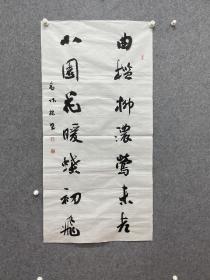 曲槛柳浓莺未老
小园花暖蝶初飞